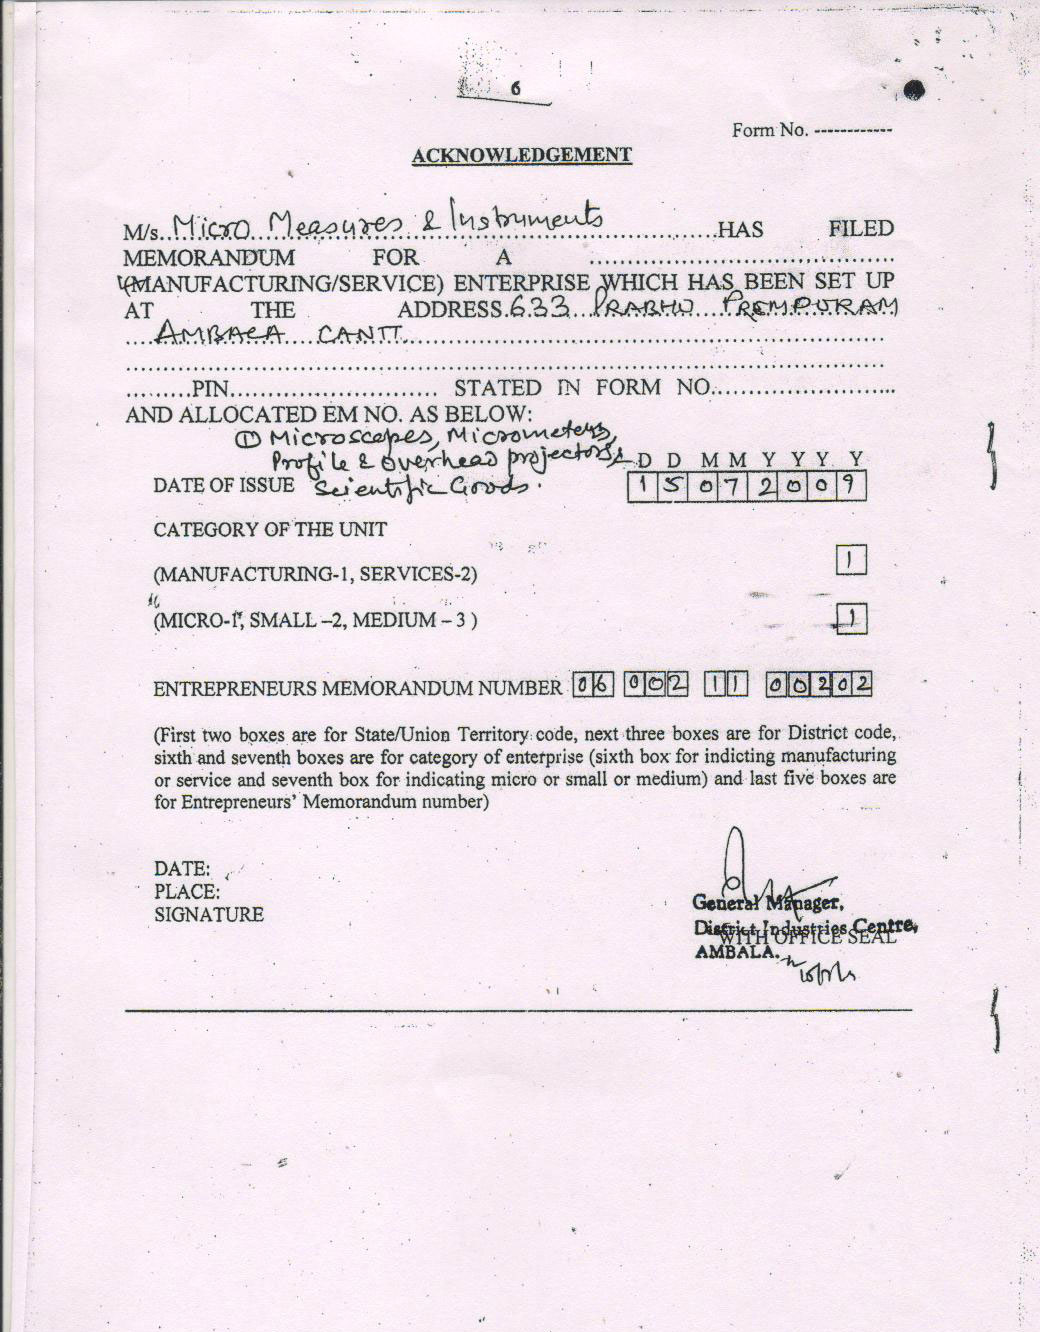 6
Form No. ------------
ACKNOWLEDGEMENT
M/s..Micro Measures & Instruments..................HAS FILED
MEMORANDUM FOR A ......................................
(MANUFACTURING/SERVICE) ENTERPRISE WHICH HAS BEEN SET UP
AT THE ADDRESS.633 PRABHU PREMPURAM
....AMBALA CANTT......................................................
..............................................................................
.........PIN.......................... STATED IN FORM NO......................
AND ALLOCATED EM NO. AS BELOW:
① Microscopes, Micrometers,
Profile & Overhead projectors &
Scientific Goods.
D D M M Y Y Y Y
DATE OF ISSUE 1 5 0 7 2 0 0 9
CATEGORY OF THE UNIT
(MANUFACTURING-1, SERVICES-2) 1
(MICRO-1, SMALL –2, MEDIUM – 3 ) 1
ENTREPRENEURS MEMORANDUM NUMBER 06 002 11 00202
(First two boxes are for State/Union Territory code, next three boxes are for District code,
sixth and seventh boxes are for category of enterprise (sixth box for indicting manufacturing
or service and seventh box for indicating micro or small or medium) and last five boxes are
for Entrepreneurs' Memorandum number)
DATE:
PLACE:
SIGNATURE
General Manager,
District Industries Centre,
WITH OFFICE SEAL
AMBALA.